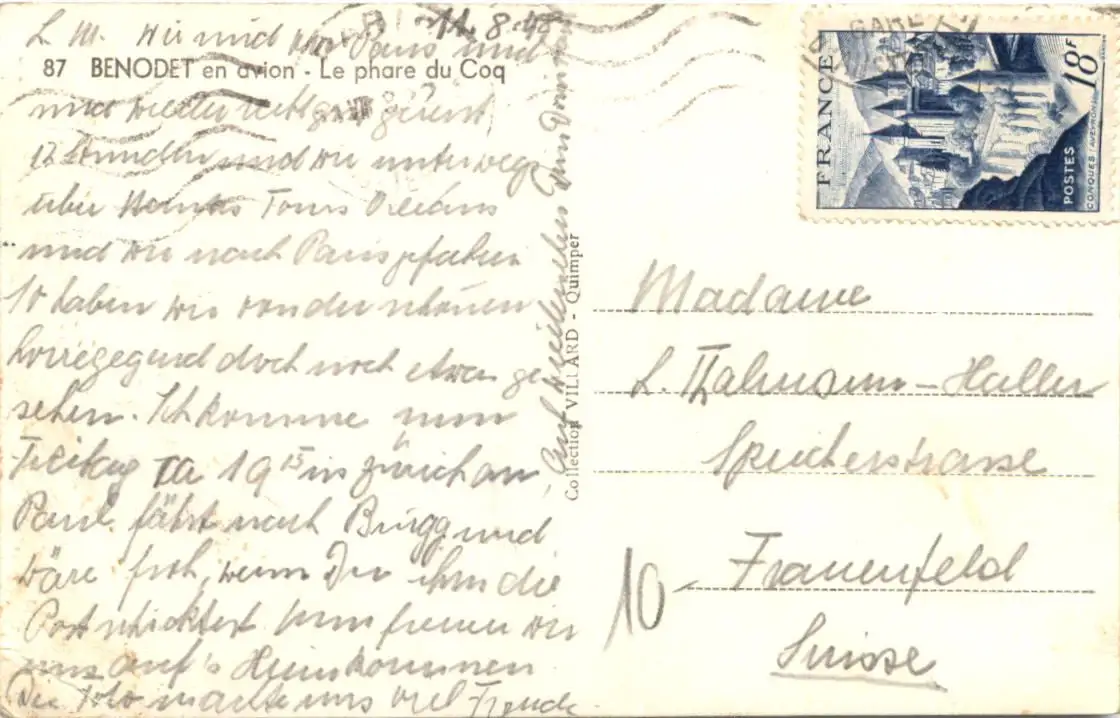 11.8.48
L. M. Wir sind von Paris und
87 BENODET en avion - Le phare du Coq
sind wieder recht gut
12 Stunden sind wir unterwegs
über Nantes Tours Orléans
sind wir nach Paris gefahren
So haben wir von der schönen
Loiregegend doch noch etwas ge
sehen. Ich komme nun
Freitag ca 19 15 in Zürich an,
Paul fährt nach Brugg und
wäre froh, wenn Du ihm die
Post schicktest. Nun freuen wir
uns auf's Heimkommen.
Die Foto machte uns viel Freude.
Auf Wiedersehen
Collection VILLARD - Quimper
GARE
FRANCE
18F
POSTES
CONQUES AVEYRON
Madame
L. Thalmann-Haller
Speicherstrasse
Frauenfeld
Suisse
10